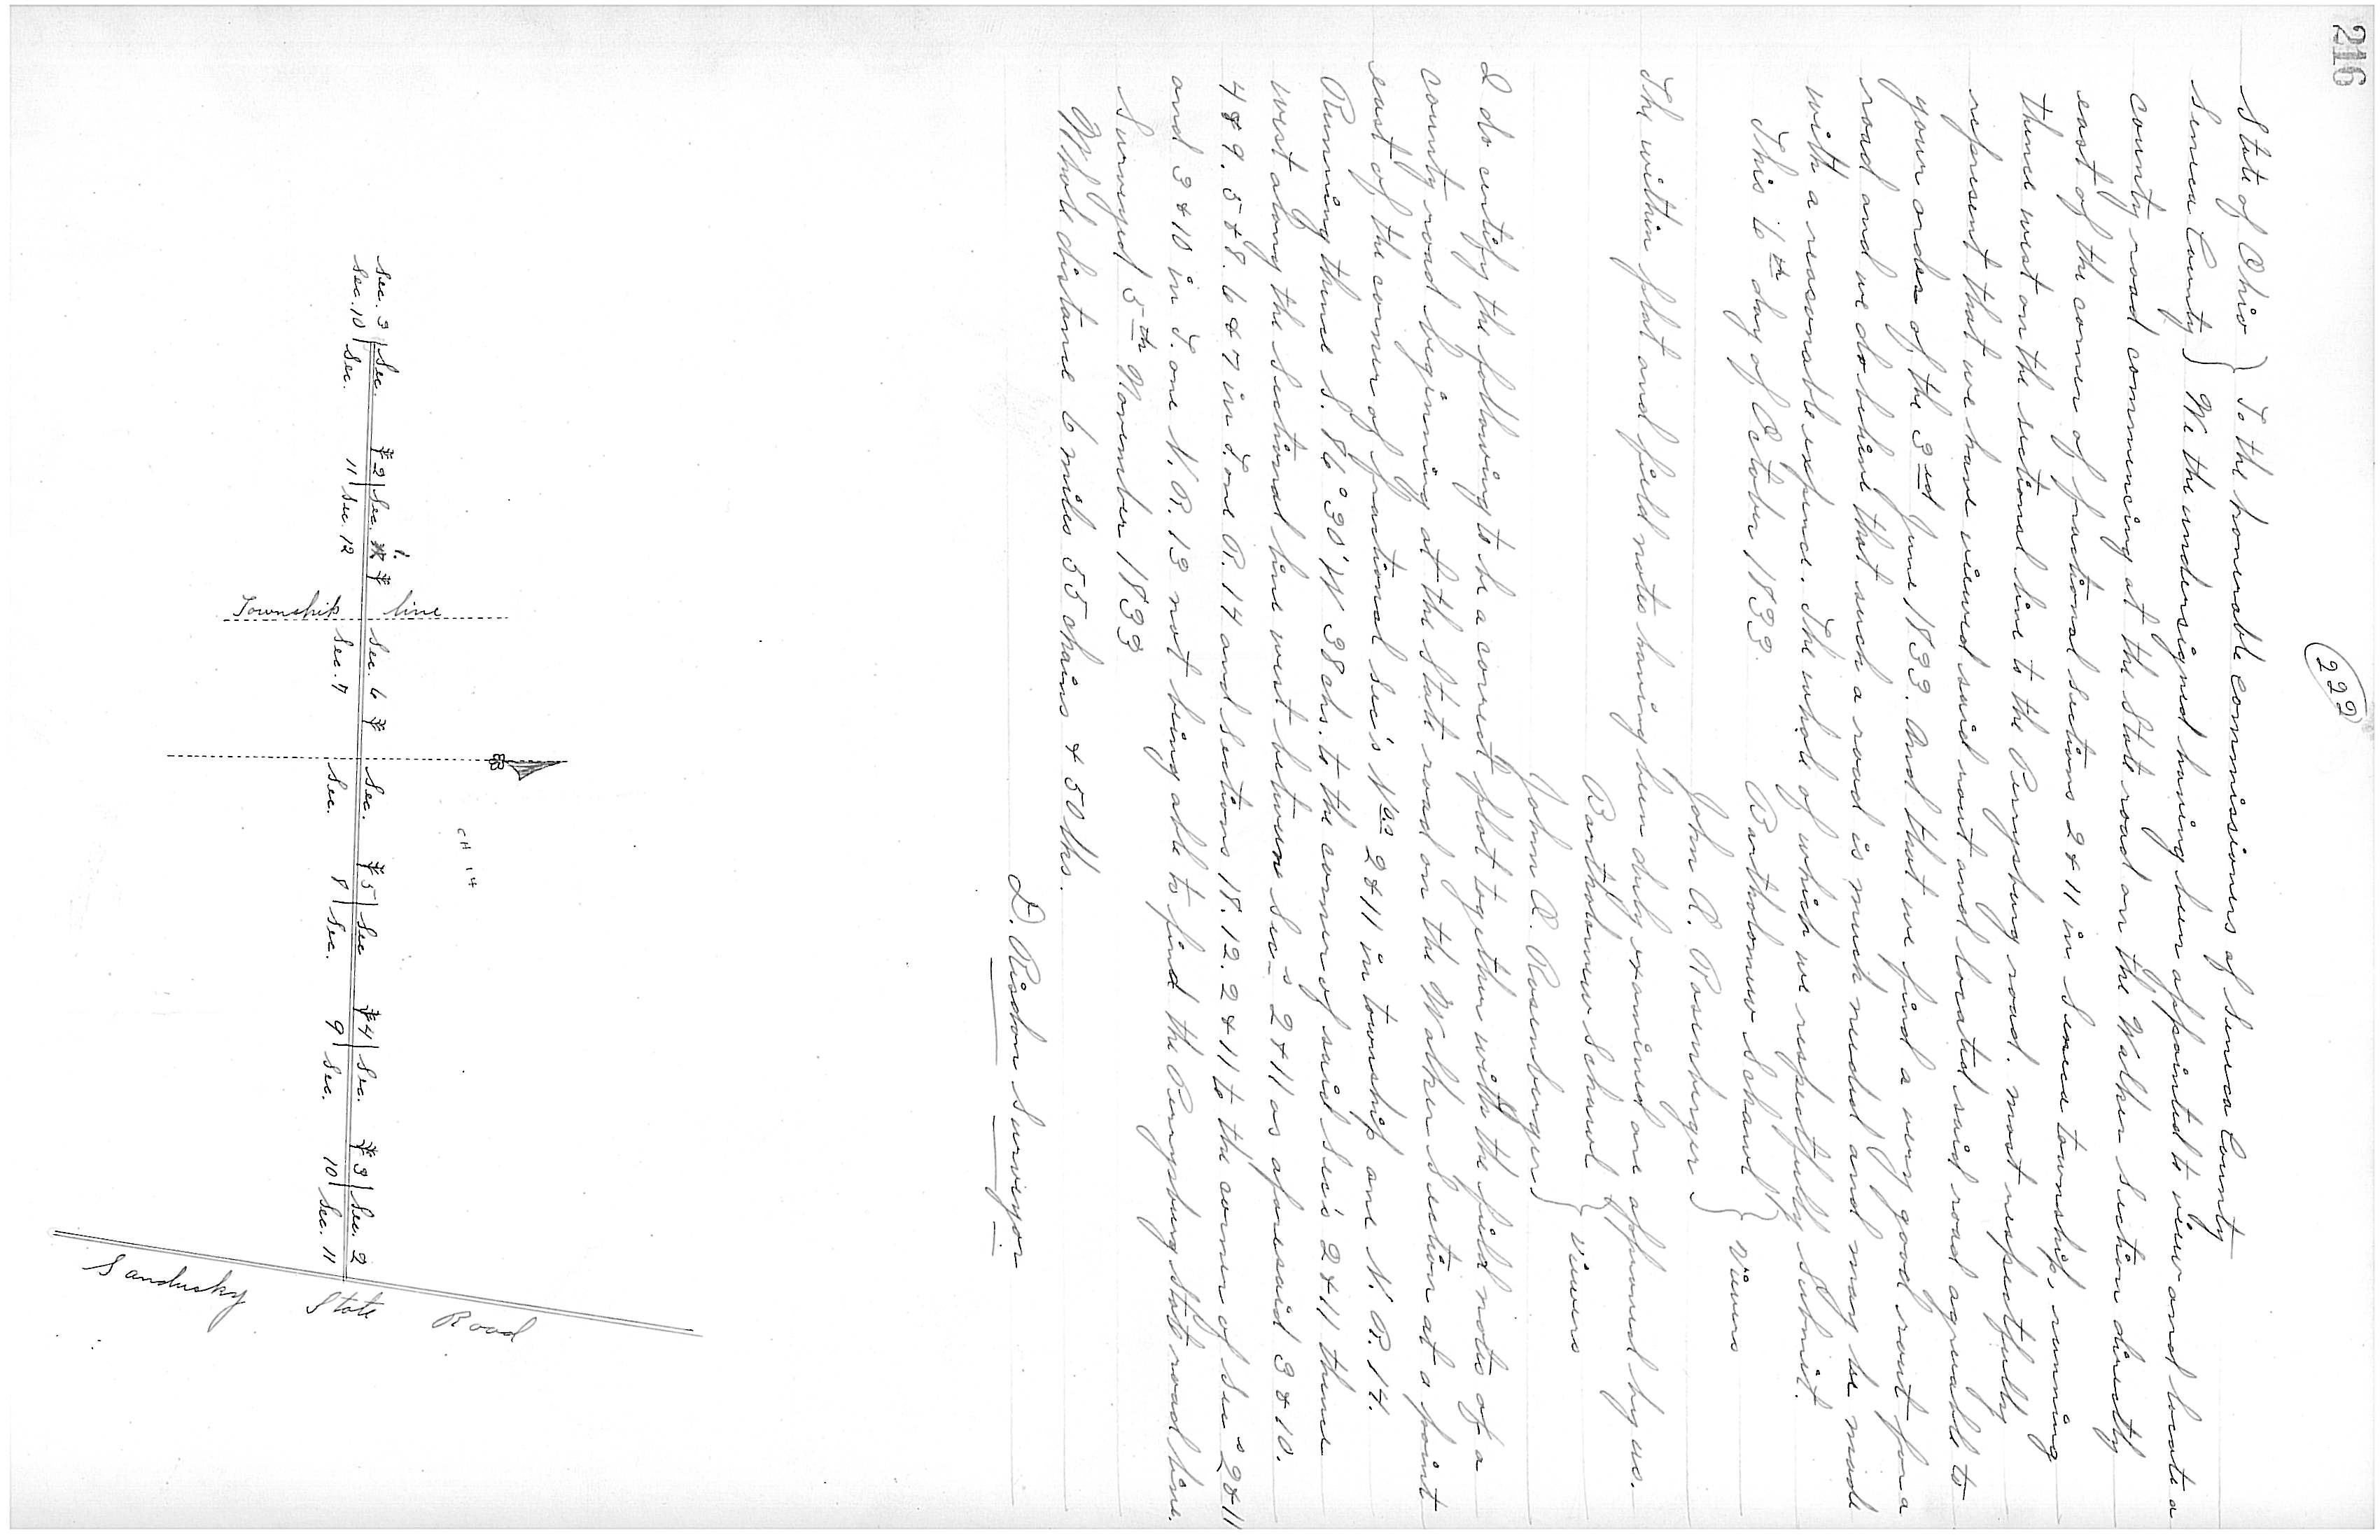 216
222
State of Ohio } To the honerable commissioners of Seneca County
Seneca County } We the undersigned having been appointed to view and locate a
county road commencing at the State road on the Walker Section directly
east of the corner of fractional sections 2 & 11 in Seneca township, running
thence west on the sectional line to the Perrysburg road. most respectfully
represent that we have viewed said rout and located said road agreeable to
your order of the 3rd June 1833. And that we find a very good rout for a
road and we do believe that such a road is much needed and may be made
with a reasonable expence. The whole of which we respectfully submit.
This 16th day of October 1833. Bartholomew Schawl } viewers
John A. Rosenberger }
The within plat and field notes having been duly examined are approved by us.
Bartholomew Schawl } viewers
John A. Rosenberger }
I do certify the following to be a correct plat together with the field notes of a
county road beginning at the State road on the Walker Section at a point
east of the corner of fractional Sec's Nos 2 & 11 in township one N. R. 14.
Running thence S. 86° 30' W 38 chs. to the corner of said Sec's 2 & 11 thence
west along the Sectional line west between Sec-s 2 & 11 as aforesaid 3 & 10.
4 & 9. 5 & 8. 6 & 7 in T. one R. 14 and Sections 18. 12. 2 & 11 to the corner of Sec s 2 & 11
and 3 & 10 in T. one N. R. 13 not being able to find the Perrysburg State road line.
Surveyed 5th November 1833
Whole distance 6 miles 55 chains & 50 lks.
D. Risdon Surveyor
CH 14
Sec. 3 Sec. 2 Sec. 1. Sec. 6 Sec. 5 Sec 4 Sec. 3 Sec. 2
Sec. 10 Sec. 11 Sec. 12 Sec. 7 Sec. 8 Sec. 9 Sec. 10 Sec. 11
Township line
Sandusky State Road